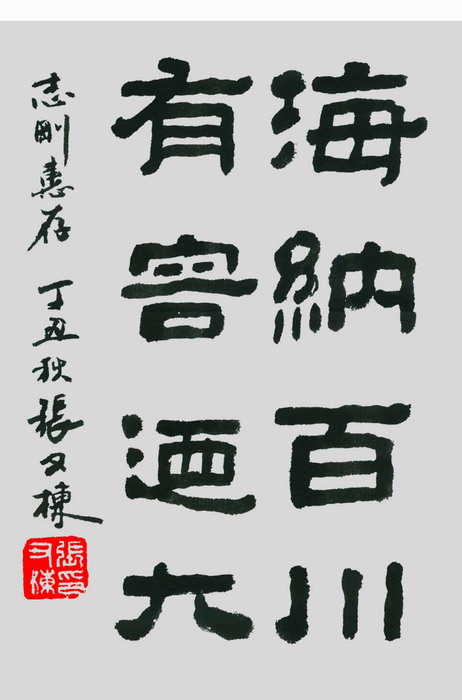 海納百川
有容迺大
志剛惠存 丁丑秋 張又棟
張印又棟